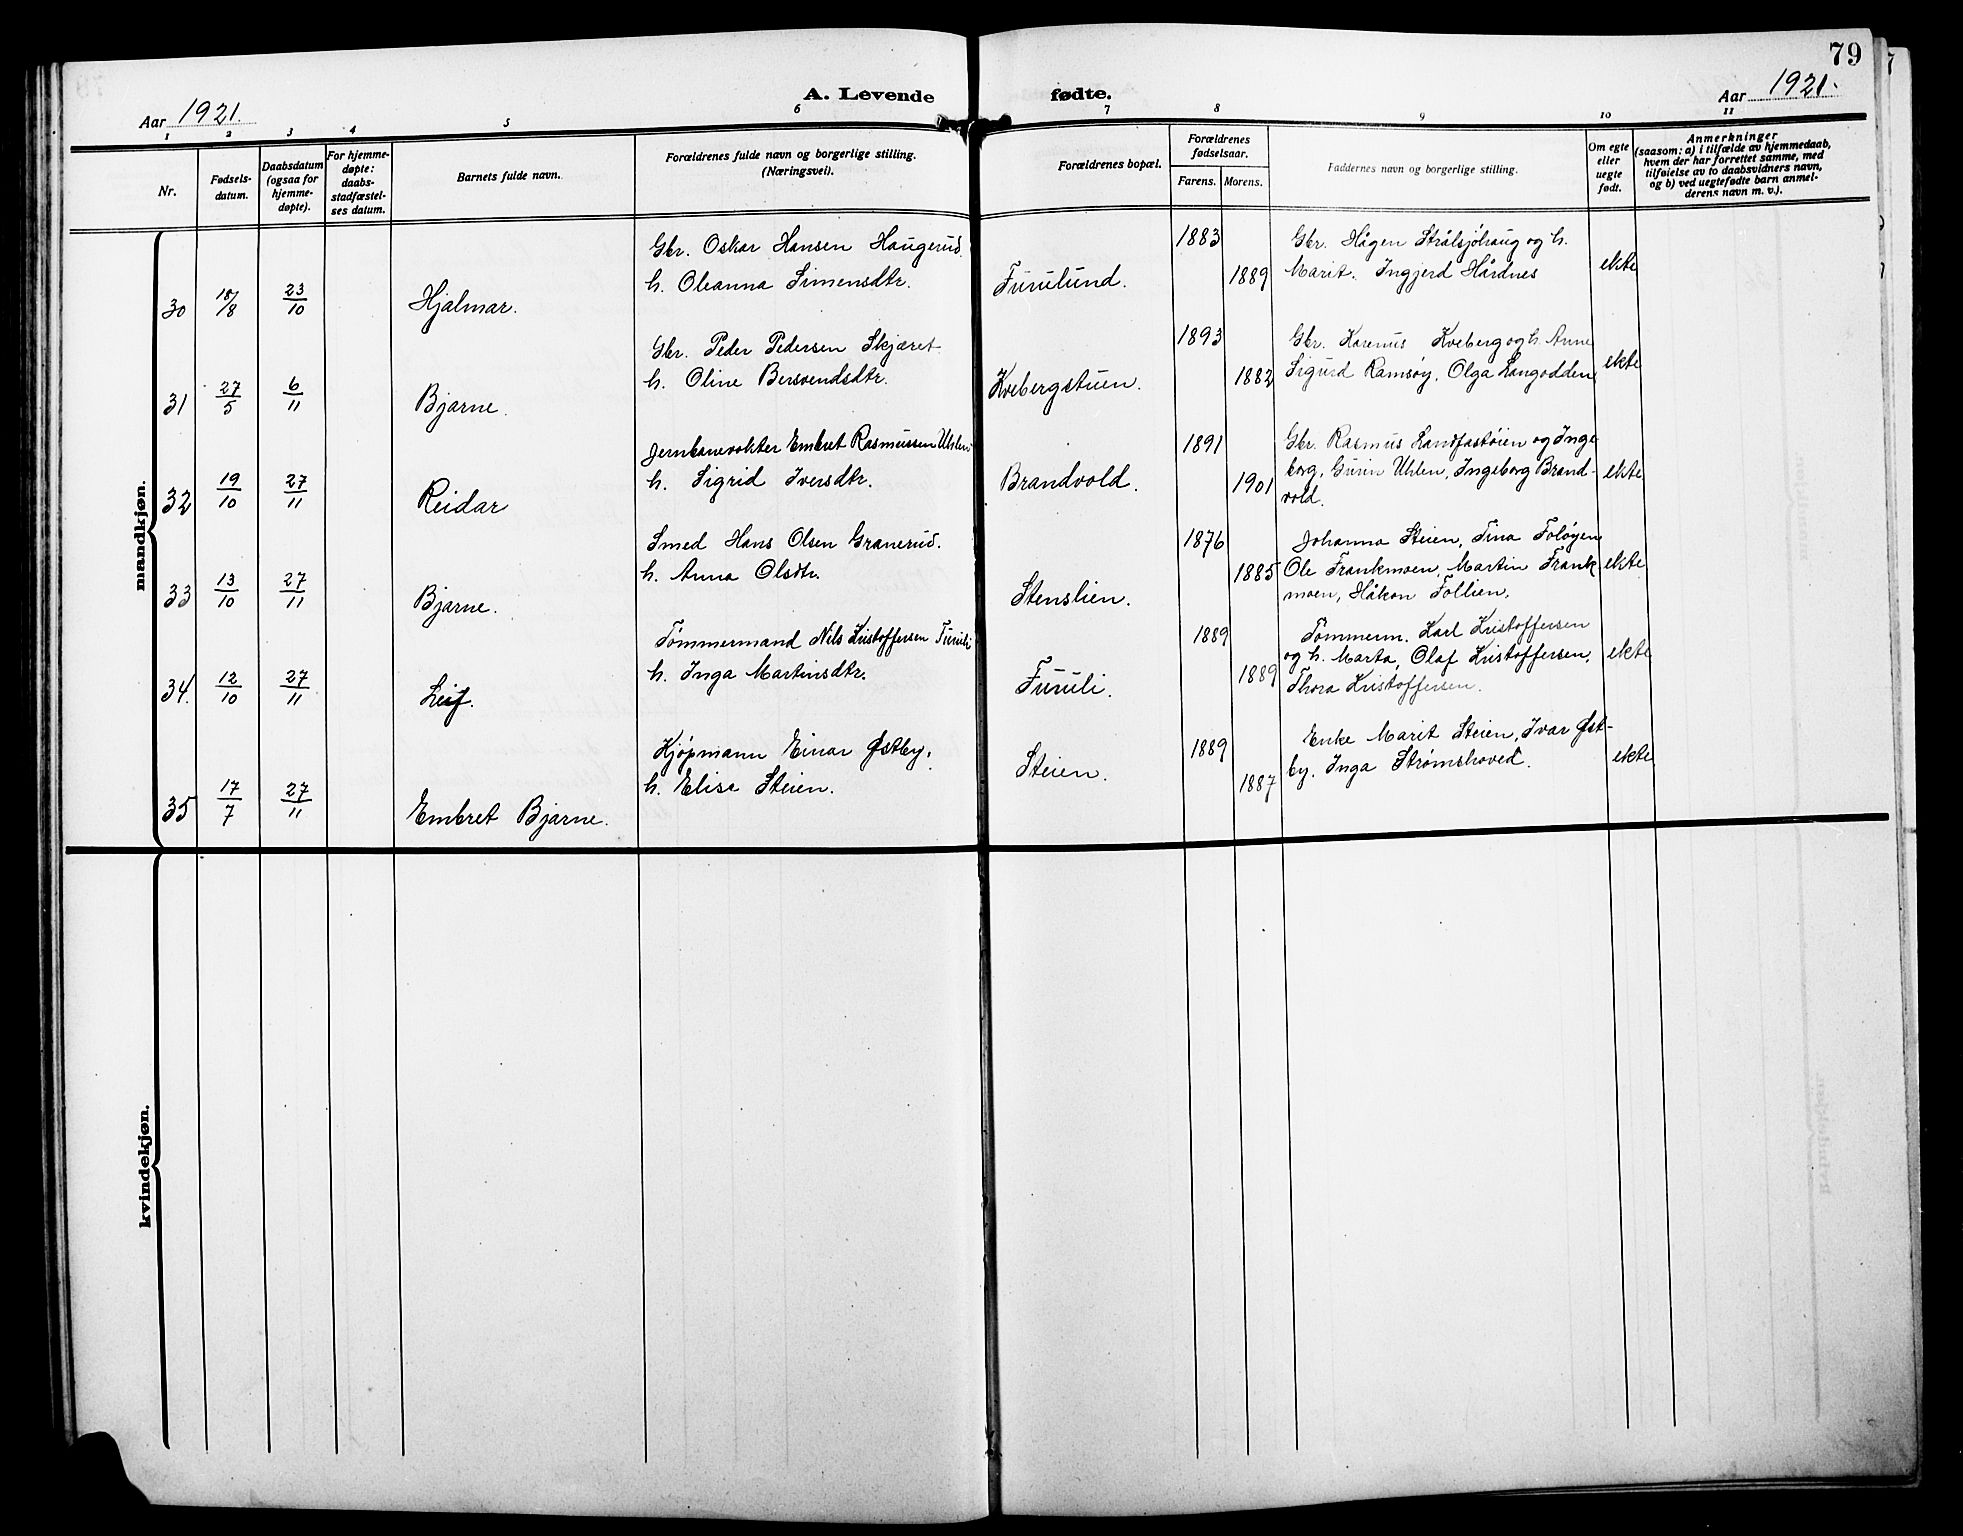 79
Aar 1921. A. Levende fødte. Aar 1921.
1 2 3 4 5 6 7 8 9 10 11
Nr.
Fødsels-
datum.
Daabsdatum
(ogsaa for
hjemme-
døpte).
For hjemme-
døpte:
daabs-
stadfæstel-
ses datum.
Barnets fulde navn.
Forældrenes fulde navn og borgerlige stilling.
(Næringsvei).
Forældrenes bopæl.
Forældrenes
fødselsaar.
Farens. Morens.
Faddernes navn og borgerlige stilling.
Om egte
eller
uegte
født.
Anmerkninger
(saasom: a) i tilfælde av hjemmedaab,
hvem der har forrettet samme, med
tilføielse av to daabsvidners navn,
og b) ved uegtefødte barn anmel-
derens navn m. v.).
mandkjøn.
30 18/8 23/10 Hjalmar.
Gbr. Oskar Hansen Haugerud.
h. Oleanna Simensdtr.
Furulund.
1883
1889
Gbr. Hågen Strålsjøhaug og h.
Marit. Ingjerd Hårdnes
ekte
31 27/5 6/11 Bjarne.
Gbr. Peder Pedersen Skjæret
h. Oline Bersvendsdtr.
Kvebergstuen.
1893
1882
Gbr. Karenus Kveberg og h. Anne
Sigurd Ramsøy, Olga Langodden
ekte
32 19/10 27/11 Reidar
Jernbanevokter Embret Rasmussen Uhlen
h. Sigrid Iversdtr.
Brandvold.
1891
1901
Gbr. Rasmus Landfastøien og Inge
borg, Gurin Uhlen, Ingeborg Brand-
vold.
ekte
33 13/10 27/11 Bjarne.
Smed Hans Olsen Granerud.
h. Anna Olsdtr.
Stenslien.
1876
1885
Johanna Steien, Tina Foløyen
Ole Frankmoen, Martin Frank
moen, Håkon Follien.
ekte
34. 12/10 27/11 Leif.
Tømmermand Nils Kristoffersen Furuli
h. Inga Martinsdtr.
Furuli.
1889
1889
Tømmerm. Karl Kristoffersen
og h. Marta, Olaf Kristoffersen,
Thora Kristoffersen.
ekte
35 17/7 27/11 Embret Bjarne.
Kjøpmann Einar Østby,
h. Elise Steien.
Steien.
1889
1887
Enke Marit Steien, Ivar Øst-
by, Inga Strømshoved.
ekte
kvindekjøn.